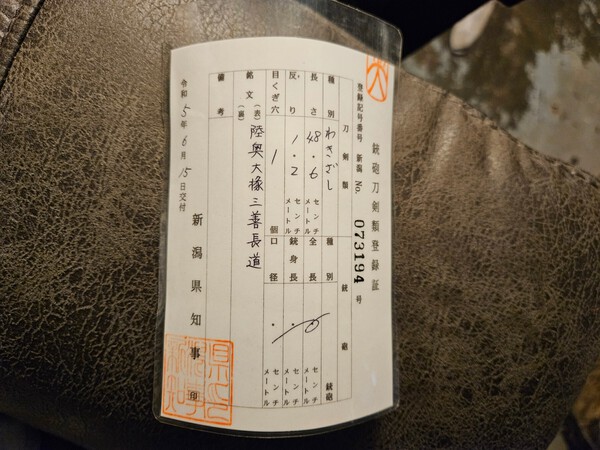 銃砲刀剣類登録証
登録記号番号 新潟 No. 073194 号
刀剣類
種別 わきざし
長さ 48.6 センチメートル
反り 1.2 センチメートル
目くぎ穴 1 個
銘文 (表) 陸奥大掾三善長道
(裏)
備考
銃砲
種別 銃砲
全長 . センチメートル
銃身長 . センチメートル
口径 . センチメートル
令和5年6月15日交付
新潟県知事 印